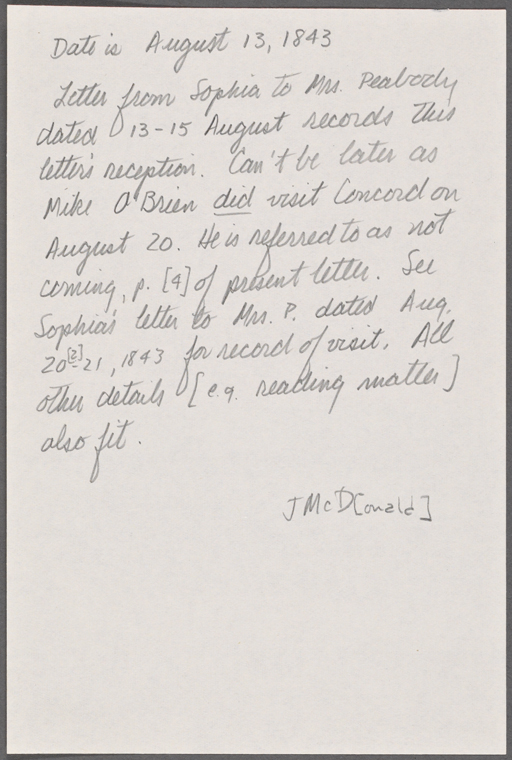 Date is August 13, 1843
Letter from Sophia to Mrs. Peabody
dated 13-15 August records this
letter's reception. Can't be later as
Mike O'Brien did visit Concord on
August 20. He is referred to as not
coming, p. [4] of present letter. See
Sophia's letter to Mrs. P. dated Aug.
20[?]-21, 1843 for record of visit. All
other details [e.g. reading matter]
also fit.
J McD[onald]